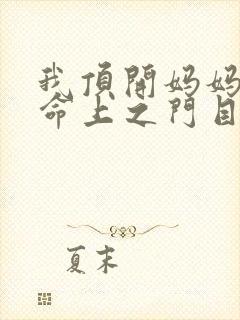 我頂開妈妈
命上之門目
夏末